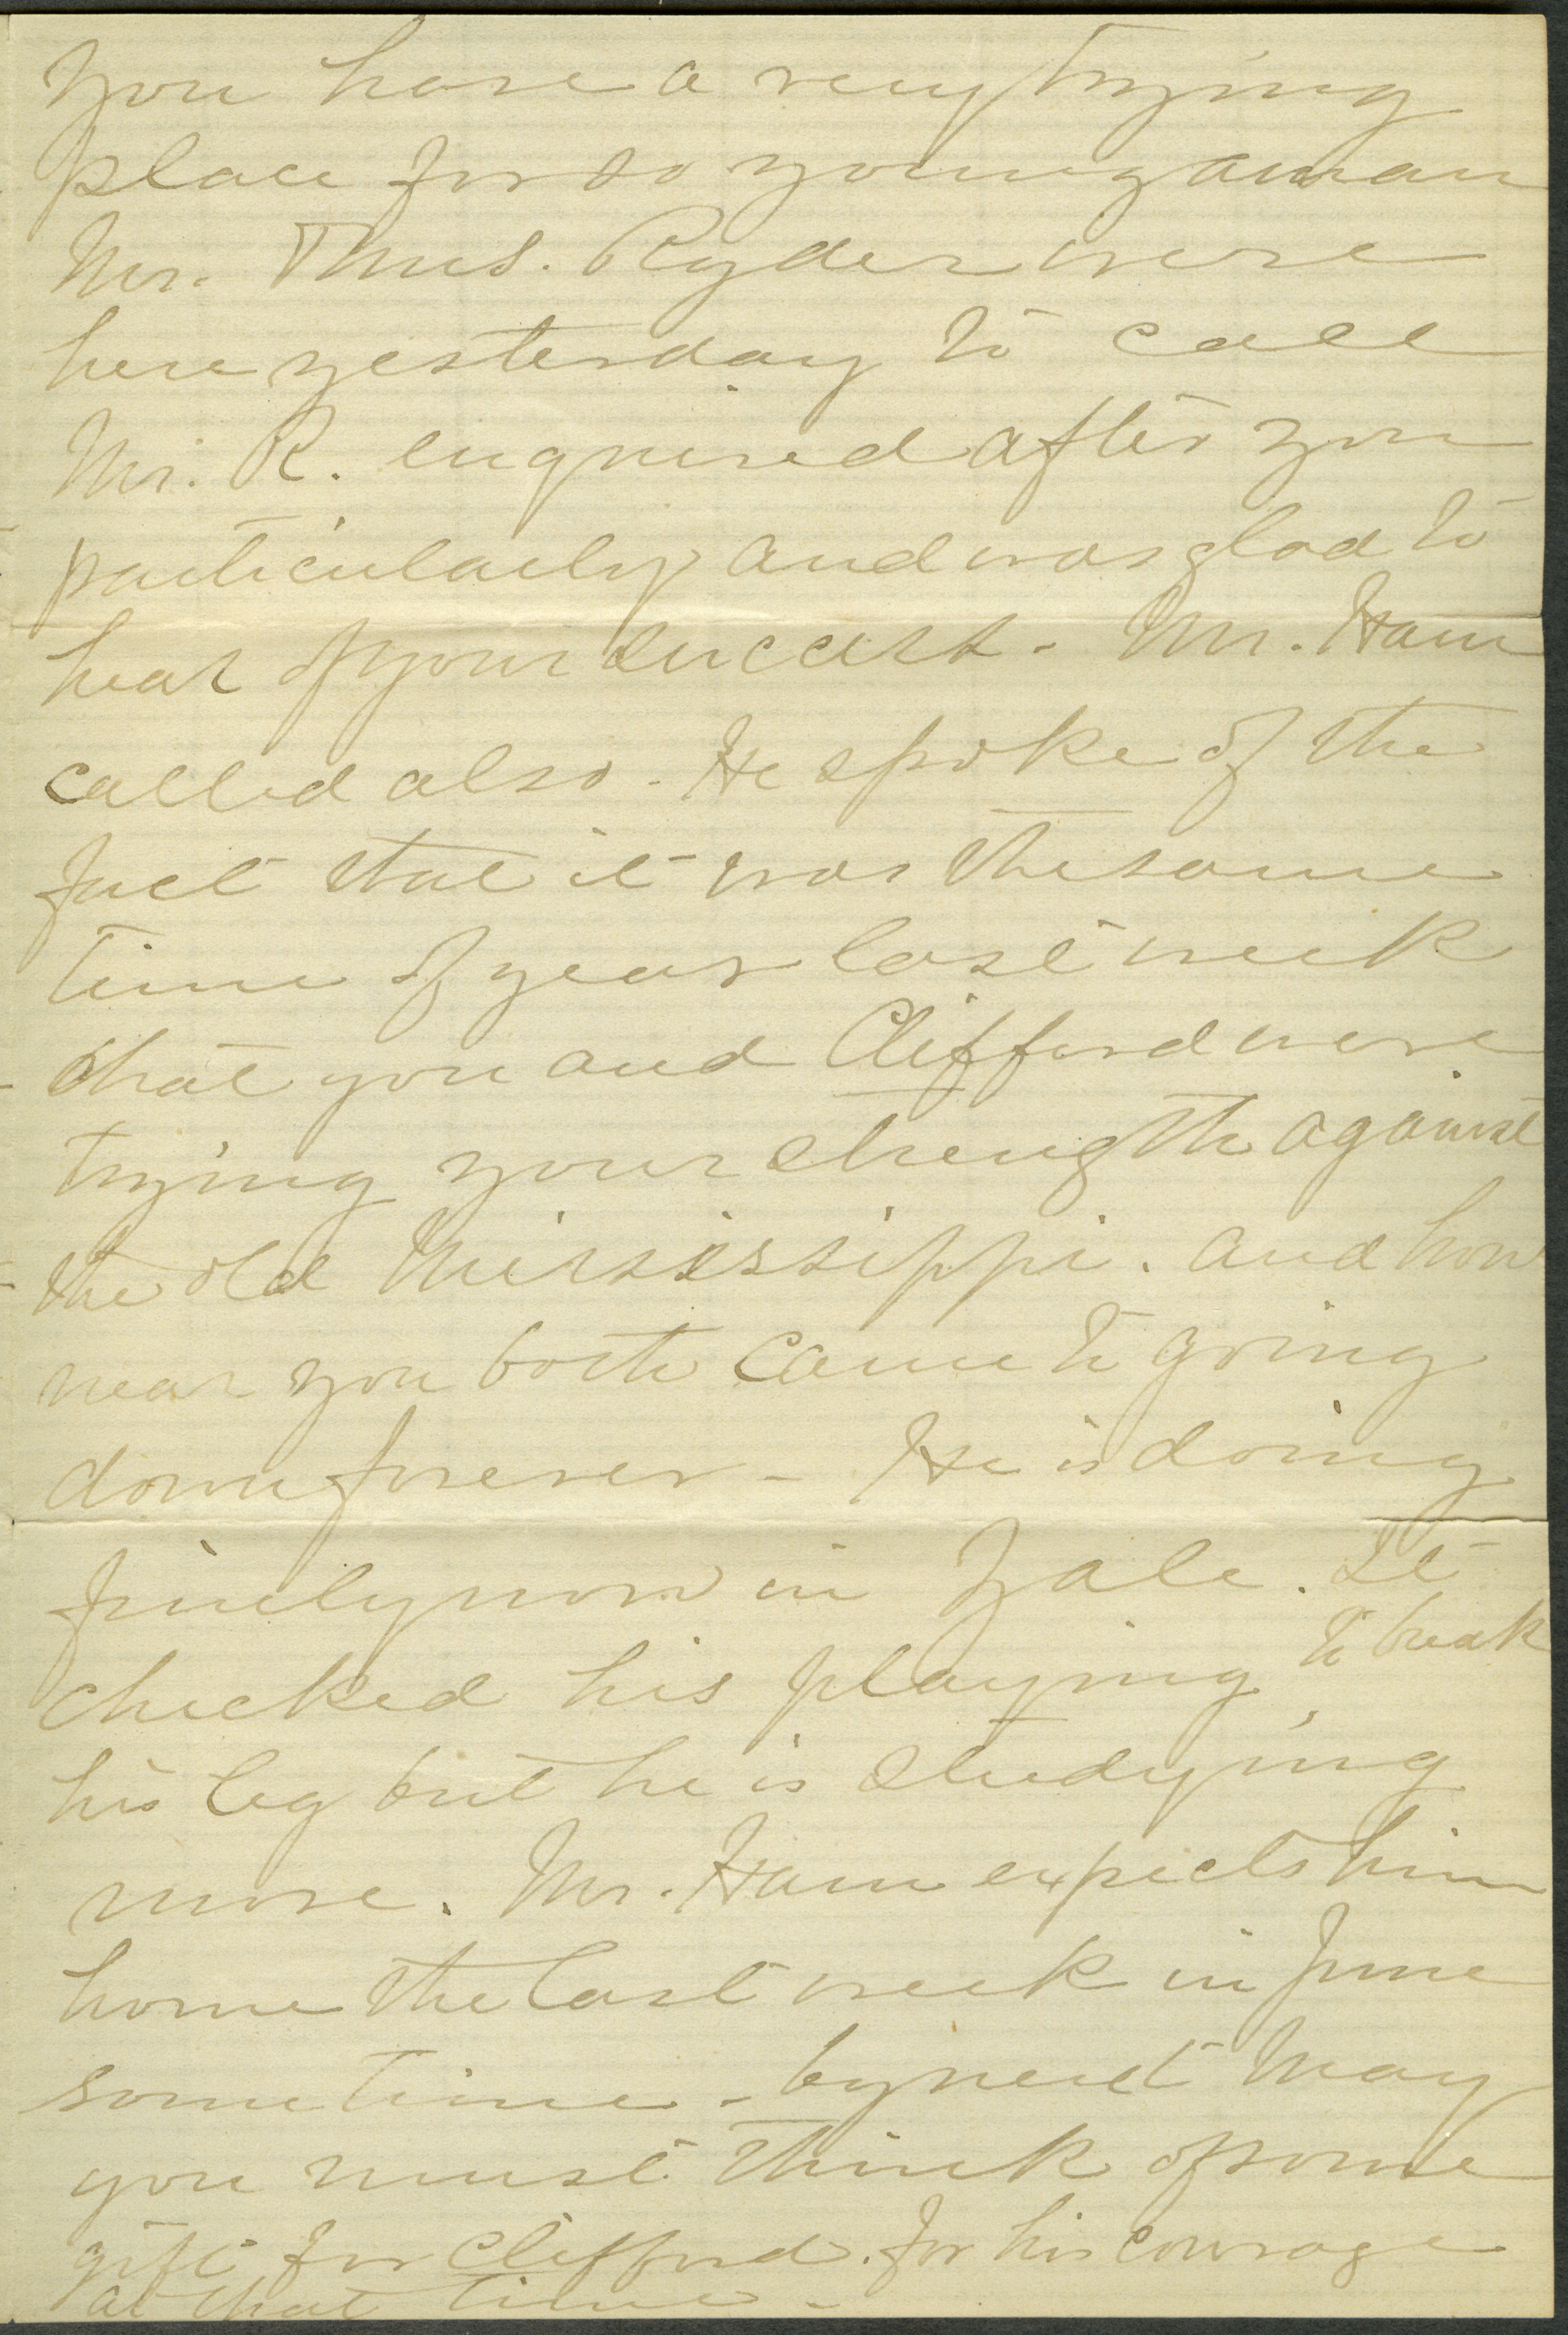 you have a very trying
place for so young a man
Mr. Thos. Ryder were
here yesterday to call
Mr. R. enquired after you
particularly and was glad to
hear of your success. Mr. Ham
called also. He spoke of the
fact that it was the same
time of year last week
that you and Clifford were
trying your strength against
the old Mississippi. and how
near you both came to going
down forever - He is doing
finely now in Yale. It
checked his playing to break
his leg but he is studying
more. Mr. Ham expects him
home the last week in June
sometime - by next May
you must think of some
gift for Clifford. for his courage
at that time -